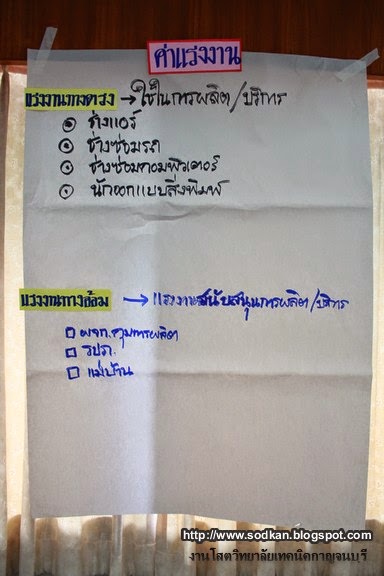 ค่าแรงงาน
แรงงานทางตรง → ใช้ในการผลิต/บริการ
ช่างแอร์
ช่างซ่อมรถ
ช่างซ่อมคอมพิวเตอร์
นักออกแบบสิ่งพิมพ์
แรงงานทางอ้อม → แรงงานสนับสนุนการผลิต/บริการ
ผจก.คุมการผลิต
รปภ.
แม่บ้าน
http://www.sodkan.blogspot.com
งานโสตวิทยาลัยเทคนิคกาญจนบุรี